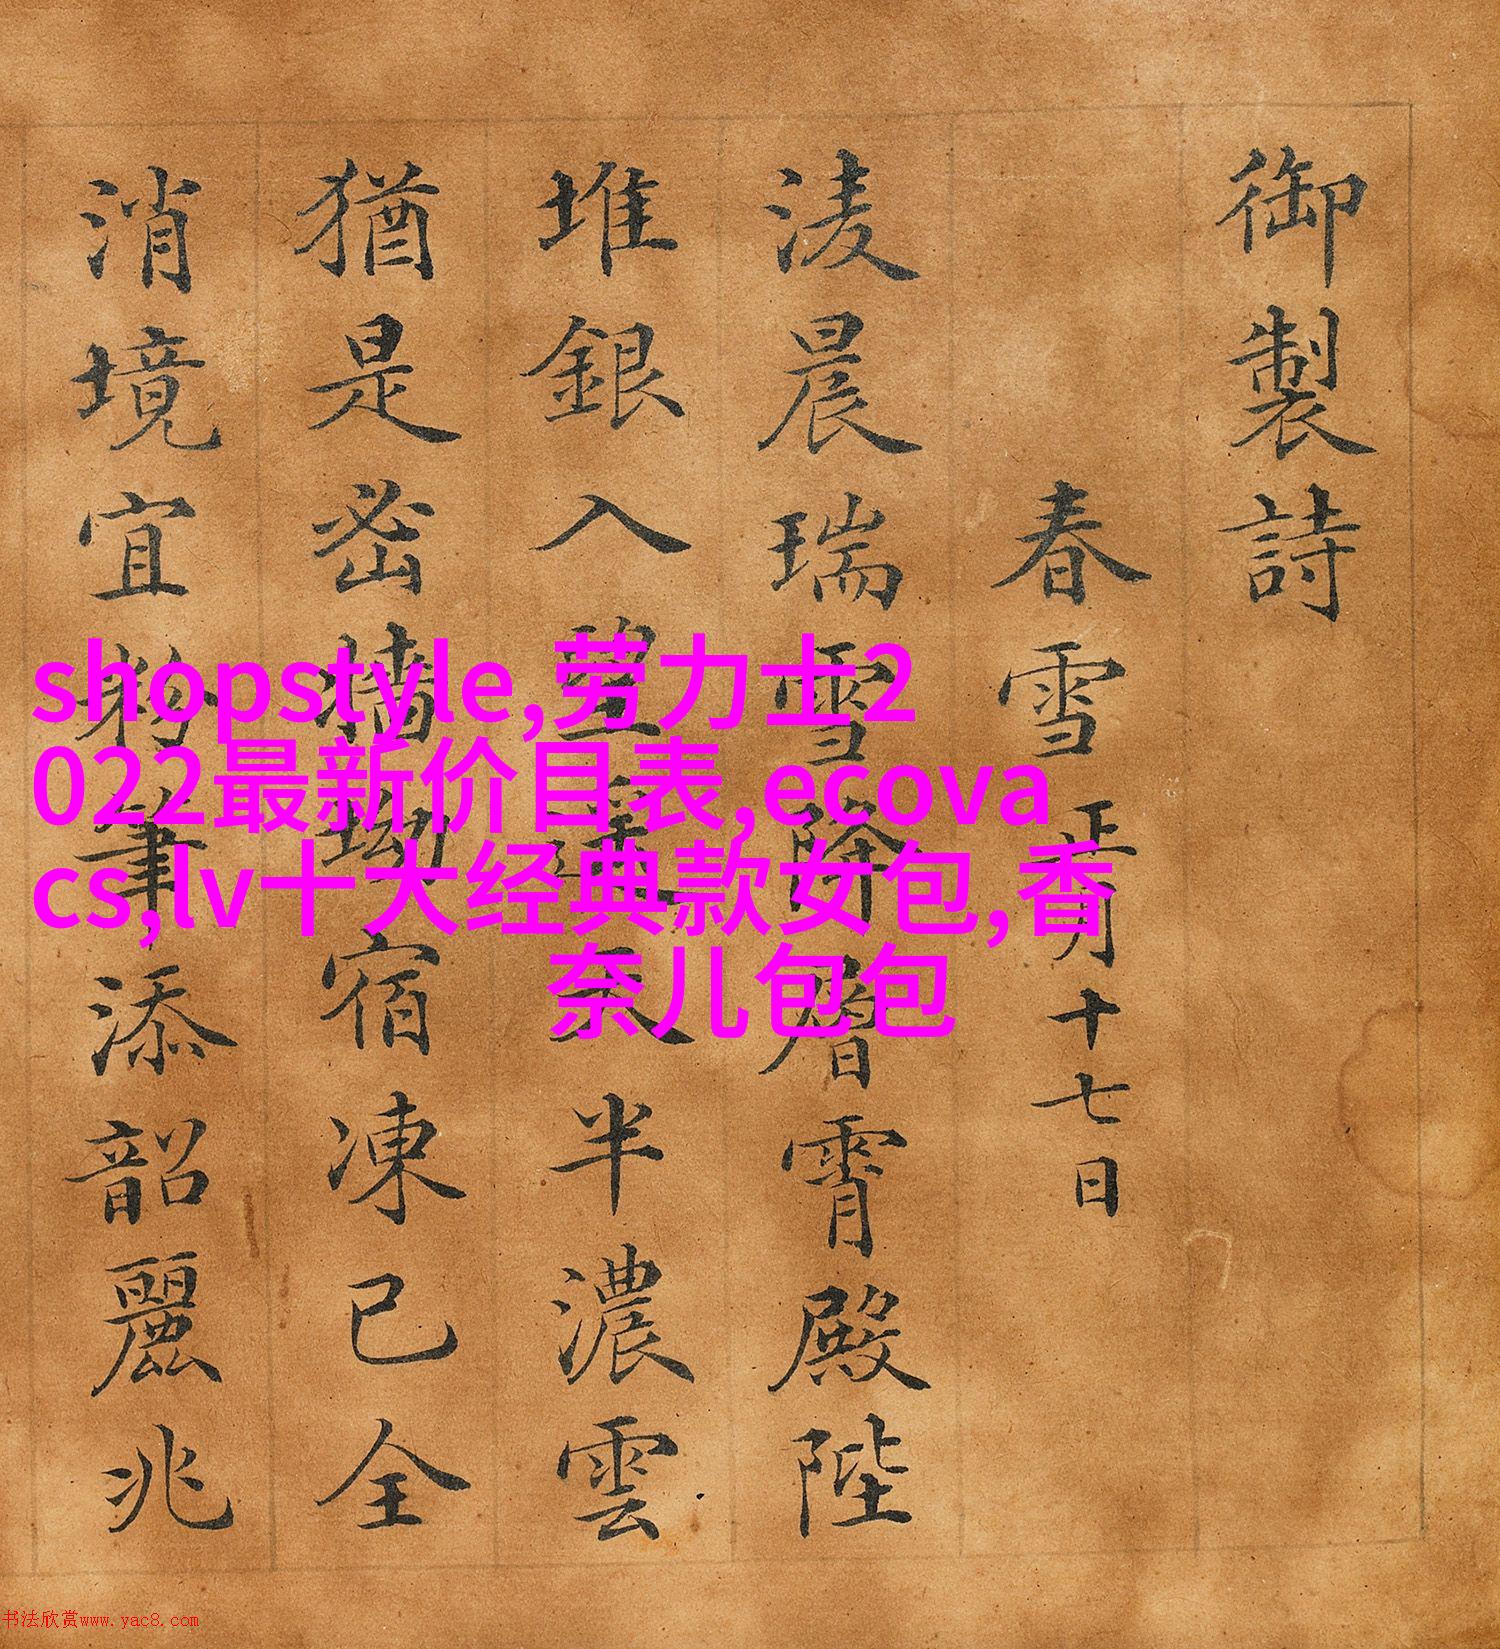 御製詩
春雪 正月十七日
淩晨瑞雪降層霄殿陛
堆銀入半濃雲
猶是密牆坳宿凍已全
消境宜筆添韶麗兆
shopstyle,劳力士2
022最新价目表,ecova
cs,lv十大经典款女包,香
奈儿包包
书法欣赏www.yac8.com